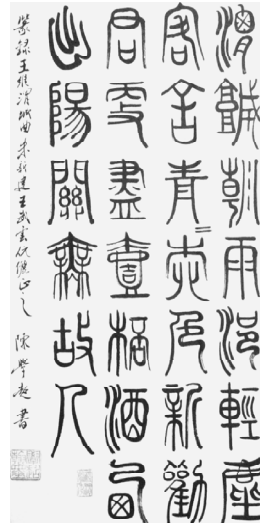 渭城朝雨浥輕塵
客舍青=柳色新勸
君更盡壹桮酒西
出陽關無故人
篆錄王維渭城曲
書